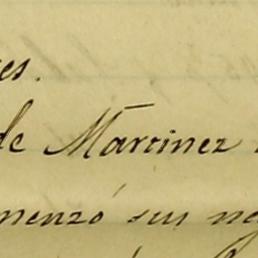 es.
de Martinez
menzó sus ne